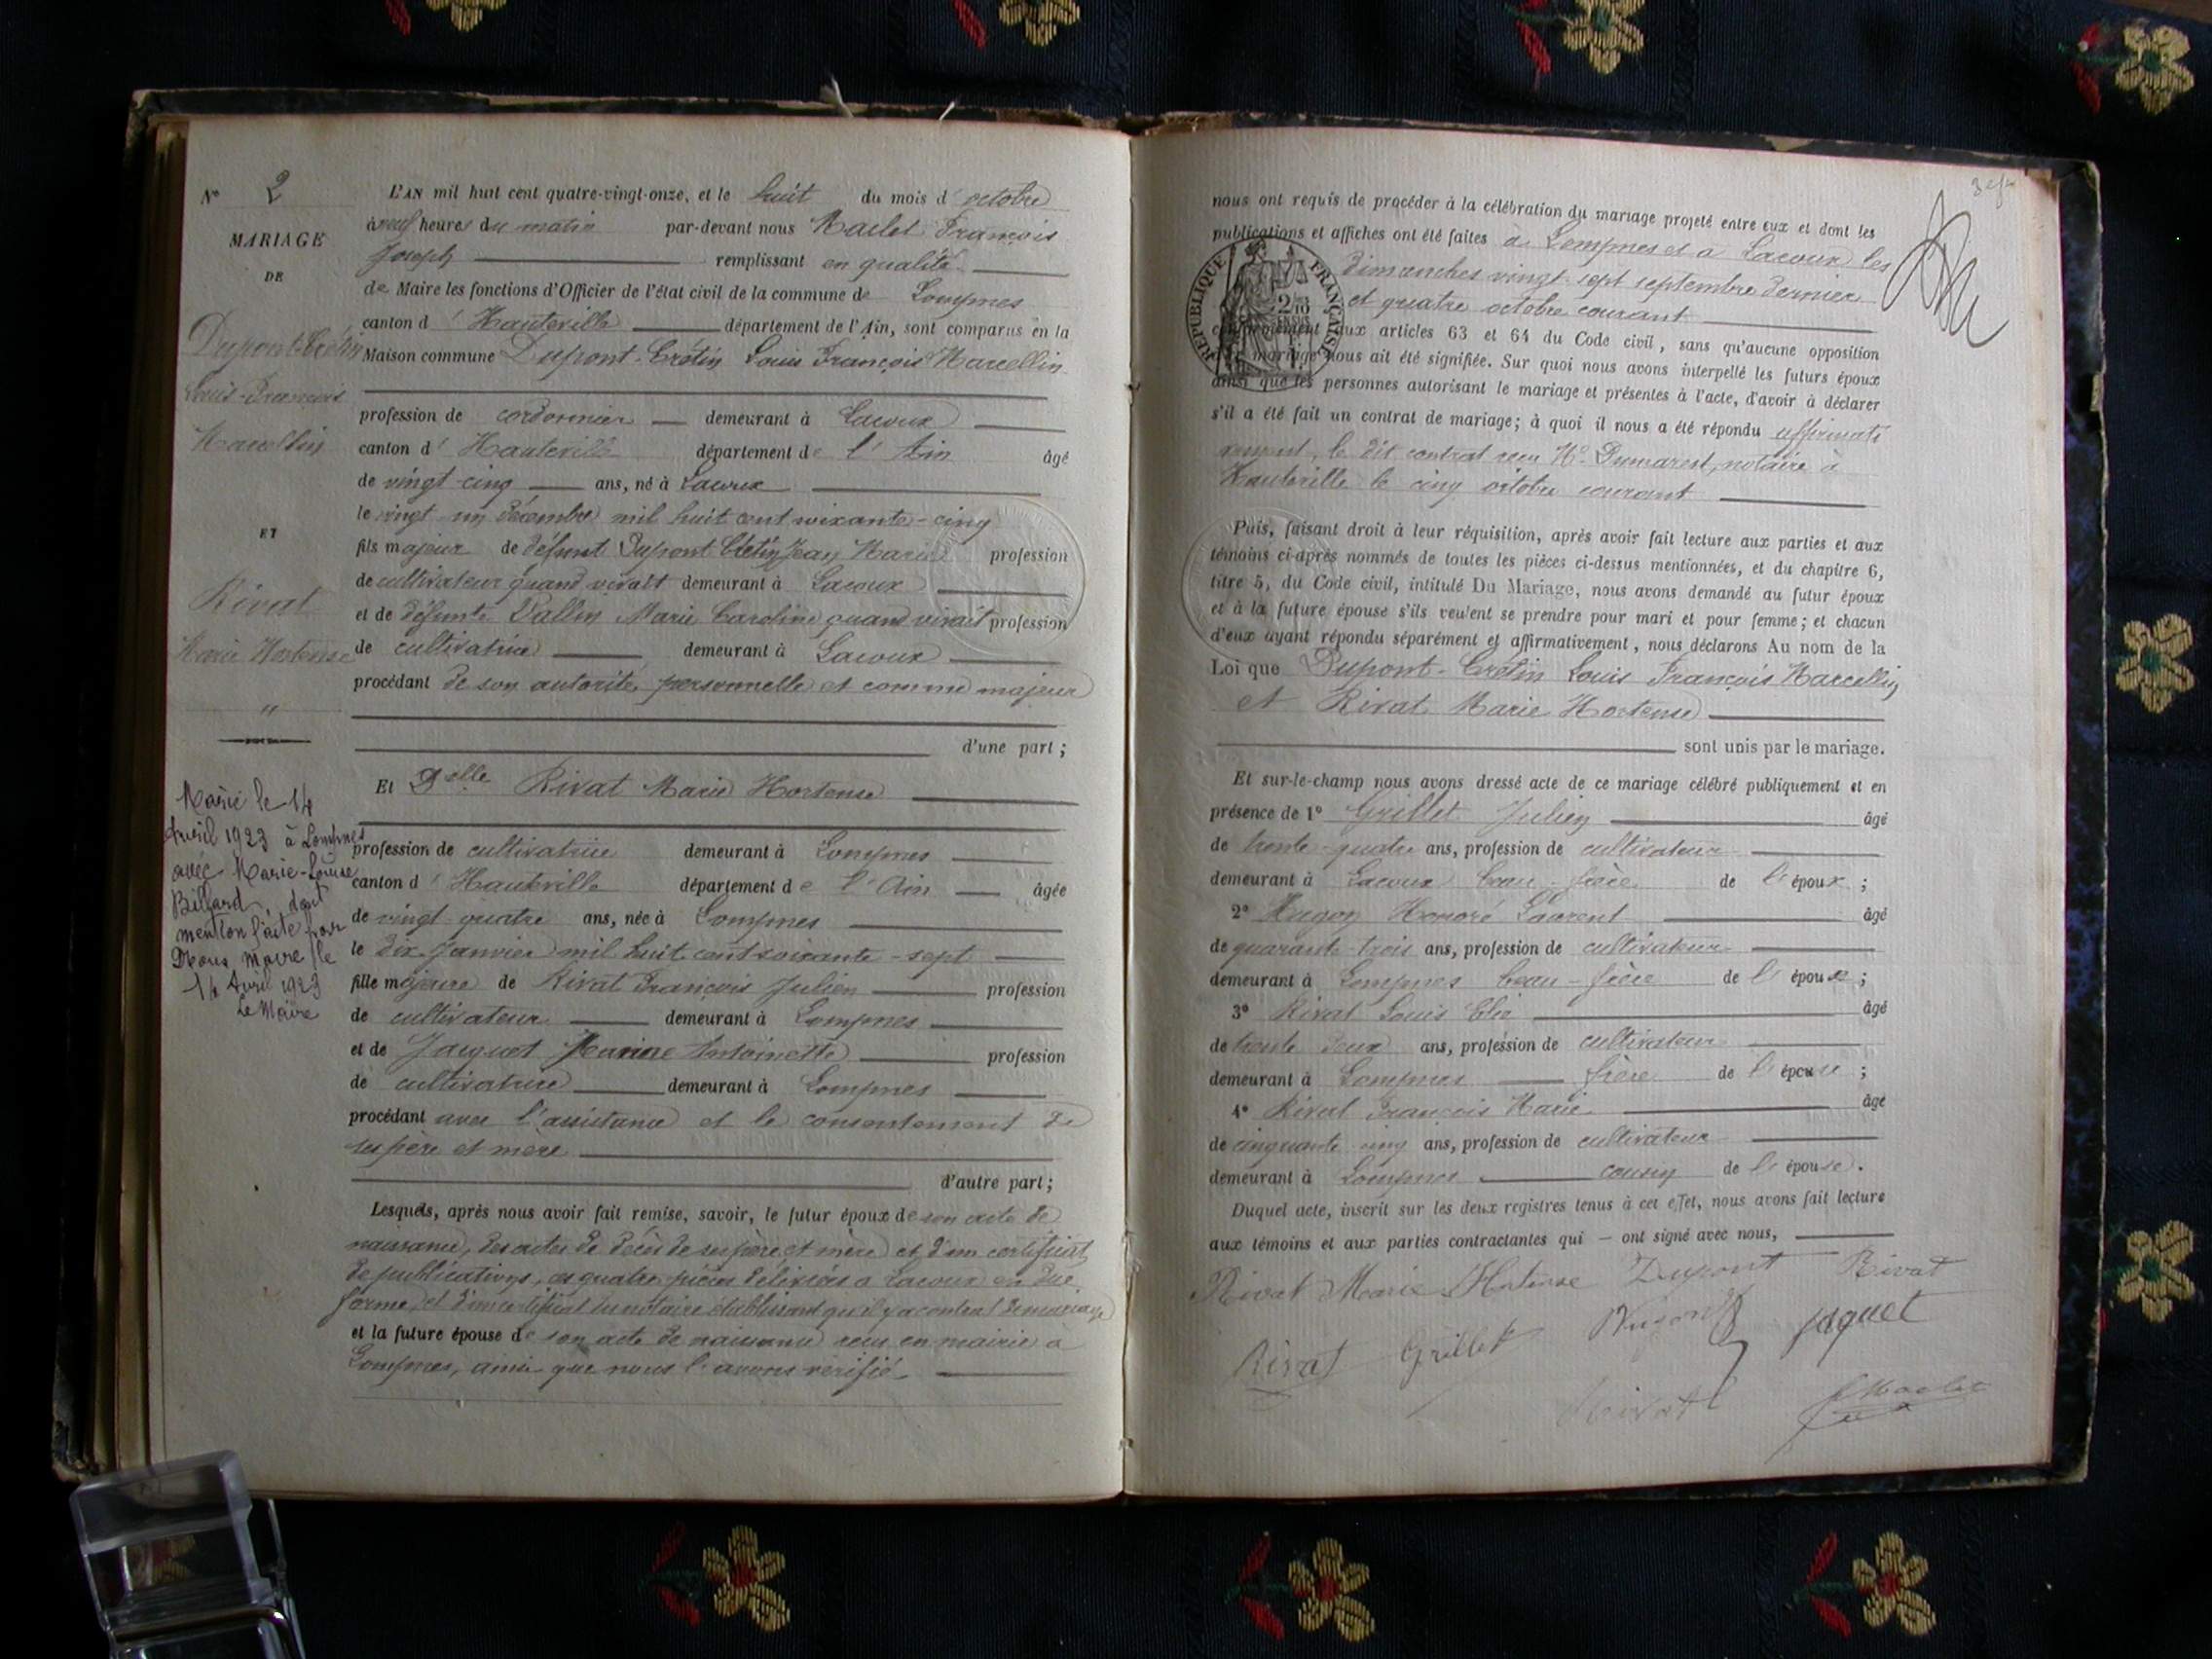 N° 2
MARIAGE
DE
Dupont-Crétin
Louis-François
Marcellin
ET
Rivat
Marie Hortense
"
Marié le 14
Avril 1923 à Lompnes
avec Marie-Louise
Billard, dont
mention faite par
Nous Maire le
14 Avril 1923
Le Maire
L'AN mil huit cent quatre-vingt-onze, et le huit du mois d'octobre
à neuf heures du matin par-devant nous Maclet François
Joseph remplissant en qualité
de Maire les fonctions d'Officier de l'état civil de la commune de Lompnes
canton d'Hauteville département de l'Ain, sont comparus en la
Maison commune Dupont-Crétin Louis François Marcellin
profession de cordonnier demeurant à Lacoux
canton d'Hauteville département de l'Ain âgé
de vingt-cinq ans, né à Lacoux
le vingt un décembre mil huit cent soixante-cinq
fils majeur de défunt Dupont Crétin Jean Marie profession
de cultivateur quand vivait demeurant à Lacoux
et de défunte Vallin Marie Caroline quand vivait profession
de cultivatrice demeurant à Lacoux
procédant de son autorité personnelle et comme majeur
d'une part ;
Et Delle Rivat Marie Hortense
profession de cultivatrice demeurant à Lompnes
canton d'Hauteville département de l'Ain âgée
de vingt-quatre ans, née à Lompnes
le dix Janvier mil huit cent soixante-sept
fille majeure de Rivat François Julien profession
de cultivateur demeurant à Lompnes
et de Jacquet Antoinette profession
de cultivatrice demeurant à Lompnes
procédant avec l'assistance et le consentement de
ses père et mère
d'autre part ;
Lesquels, après nous avoir fait remise, savoir, le futur époux de son acte de
naissance, des actes de décès de ses père et mère et d'un certificat
de publications, ces quatre pièces délivrées à Lacoux en due
forme et d'un certificat du notaire établissant qu'il y a contrat de mariage
et la future épouse de son acte de naissance reçu en mairie à
Lompnes, ainsi que nous l'avons vérifié
nous ont requis de procéder à la célébration du mariage projeté entre eux et dont les
publications et affiches ont été faites à Lompnes et à Lacoux les
dimanches vingt-sept septembre dernier
et quatre octobre courant
RÉPUBLIQUE FRANÇAISE
conformément aux articles 63 et 64 du Code civil, sans qu'aucune opposition
mariage nous ait été signifiée. Sur quoi nous avons interpellé les futurs époux
ainsi que les personnes autorisant le mariage et présentes à l'acte, d'avoir à déclarer
s'il a été fait un contrat de mariage; à quoi il nous a été répondu affirmati
vement, le dit contrat reçu Me Dumarest, notaire à
Hauteville le cinq octobre courant
Puis, faisant droit à leur réquisition, après avoir fait lecture aux parties et aux
témoins ci-après nommés de toutes les pièces ci-dessus mentionnées, et du chapitre 6,
titre 5, du Code civil, intitulé Du Mariage, nous avons demandé au futur époux
et à la future épouse s'ils veulent se prendre pour mari et pour femme; et chacun
d'eux ayant répondu séparément et affirmativement, nous déclarons Au nom de la
Loi que Dupont-Crétin Louis François Marcellin
et Rivat Marie Hortense
sont unis par le mariage.
Et sur-le-champ nous avons dressé acte de ce mariage célébré publiquement et en
présence de 1° Grillet Julien âgé
de trente-quatre ans, profession de cultivateur
demeurant à Lacoux beau-frère de l'époux ;
2° Hugon Honoré Laurent âgé
de quarante-trois ans, profession de cultivateur
demeurant à Lompnes beau-frère de l'épouse ;
3° Rivat Louis Elie âgé
de trente deux ans, profession de cultivateur
demeurant à Lompnes frère de l'épouse ;
4° Rivat François Marie âgé
de cinquante cinq ans, profession de cultivateur
demeurant à Lompnes cousin de l'épouse.
Duquel acte, inscrit sur les deux registres tenus à cet effet, nous avons fait lecture
aux témoins et aux parties contractantes qui – ont signé avec nous,
Rivat Marie Hortense Dupont Rivat
Rivat Grillet Hugon Jaquet
Rivat Maclet